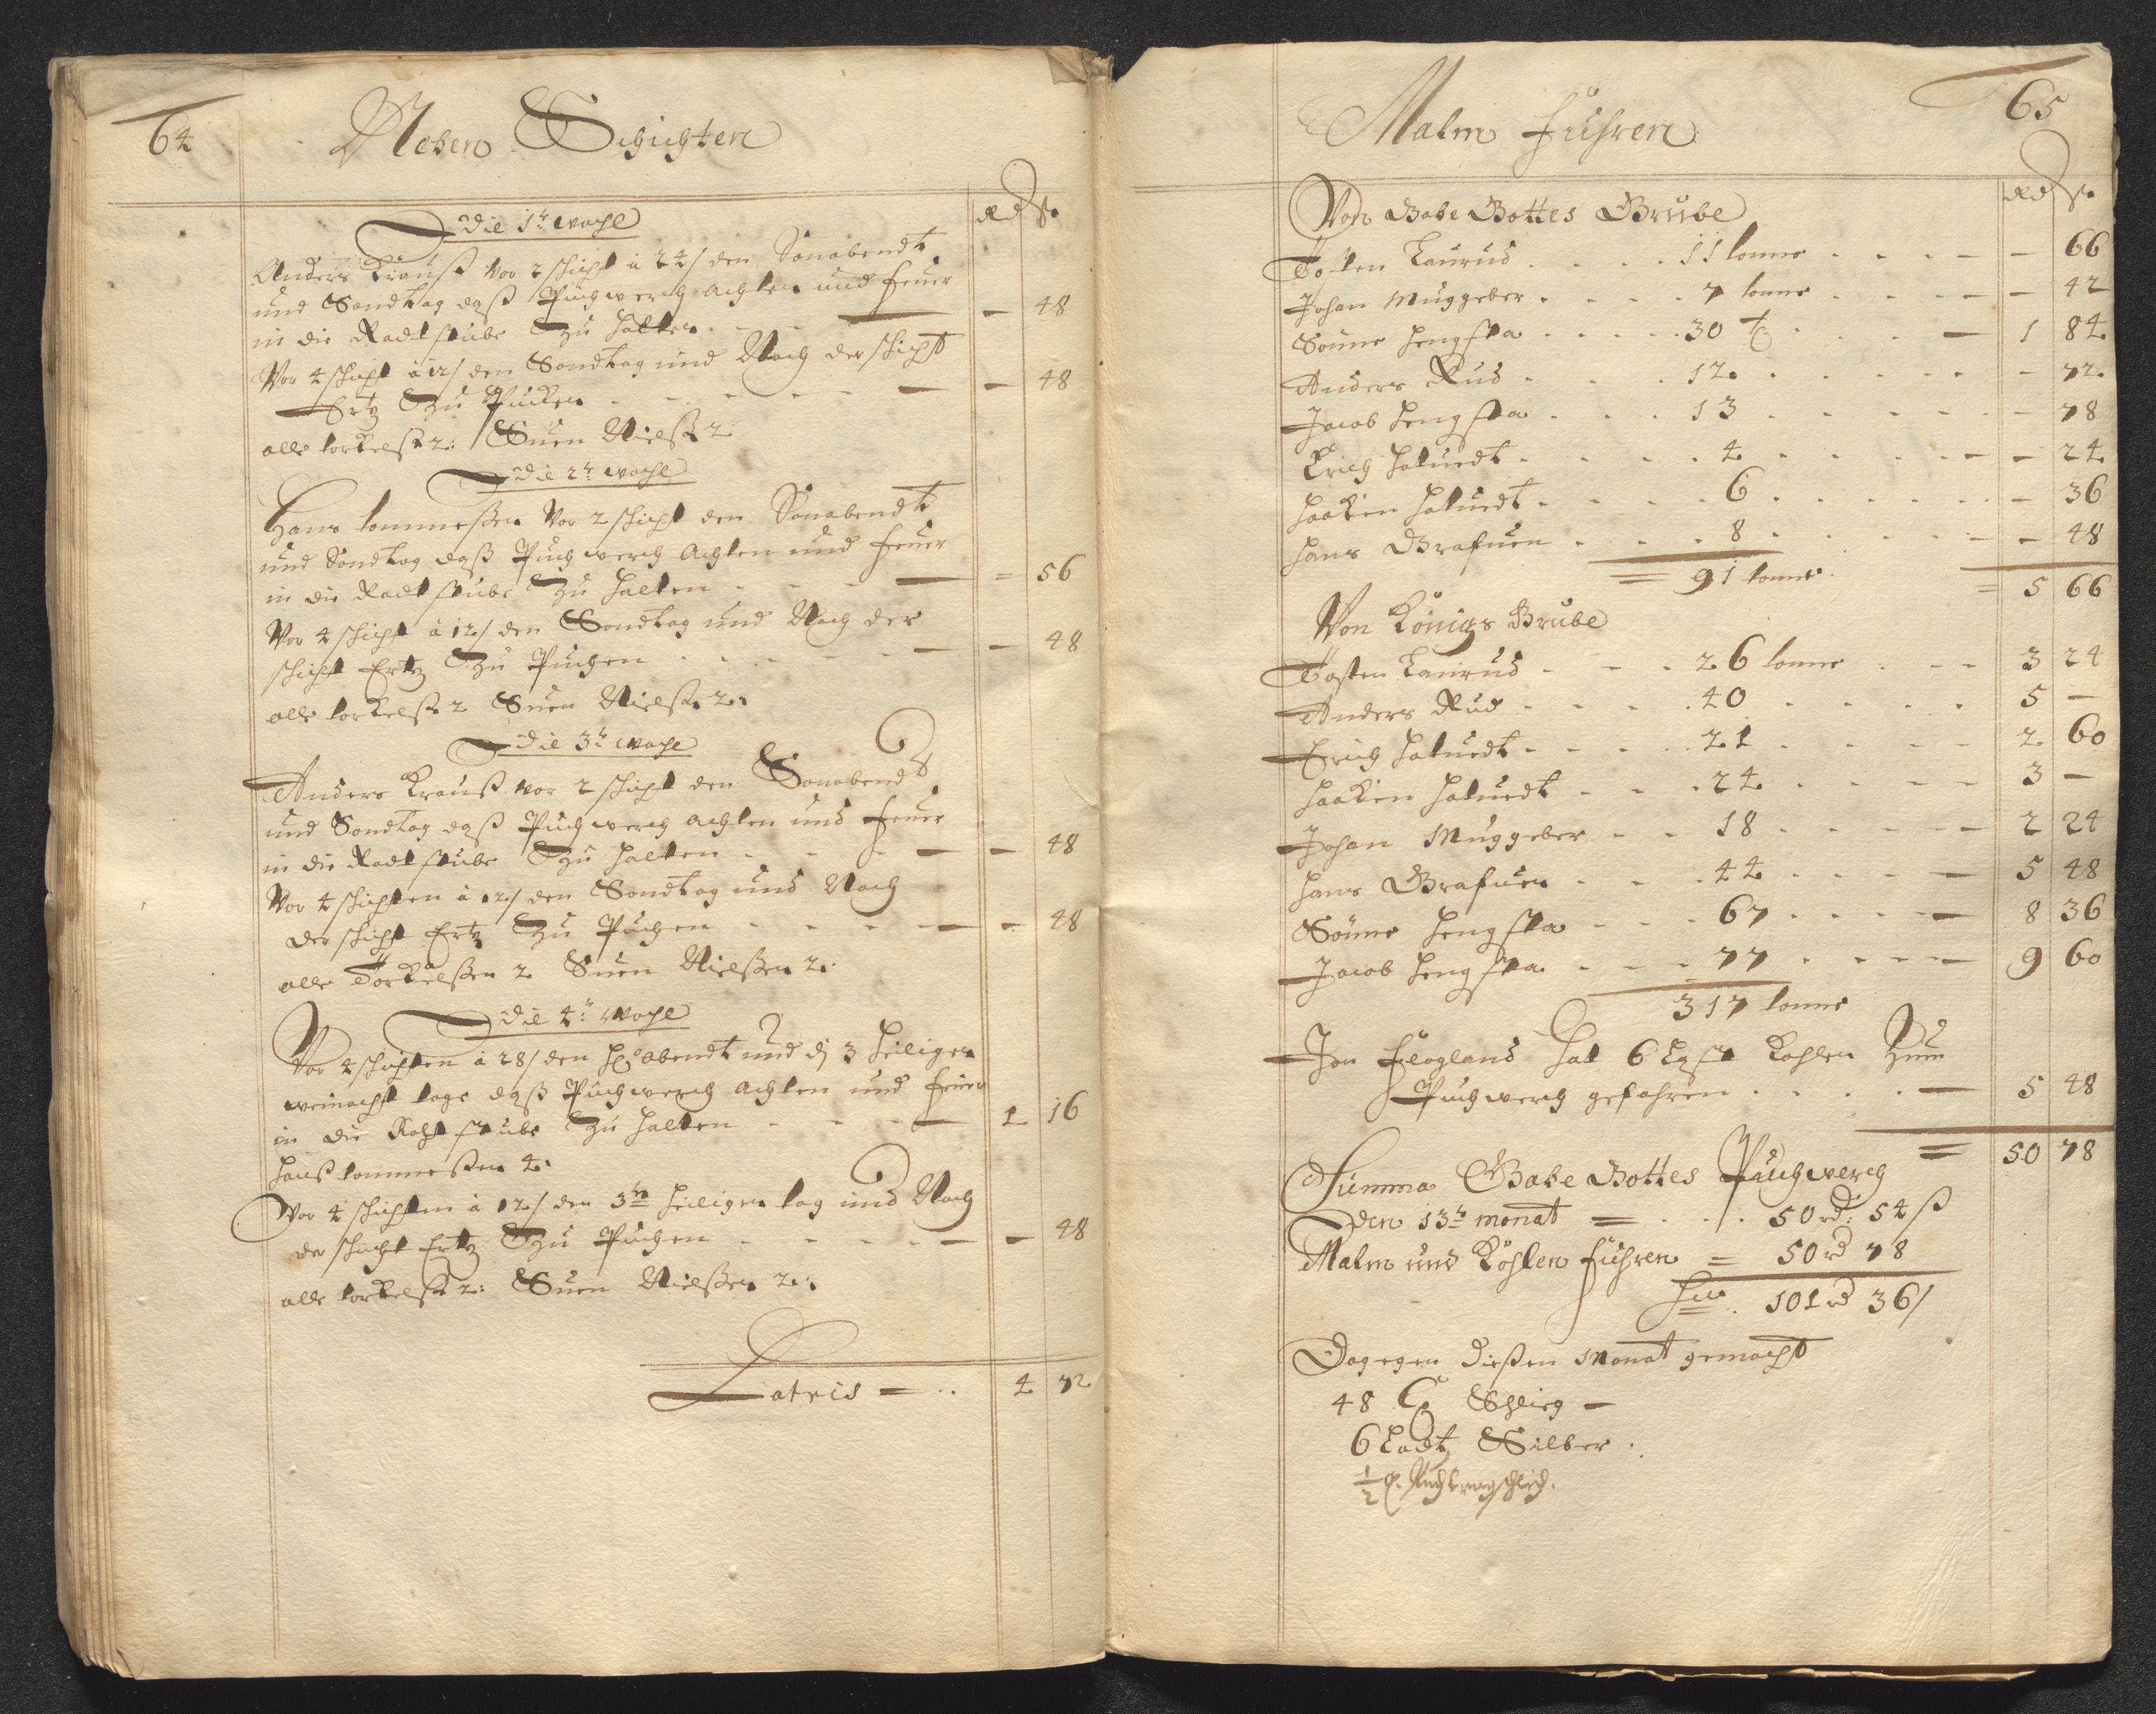 64
Neben Schichten
Rd ß
Die 1te woche
Anders Krauß vor 2 schicht à 24/ den Sonabendt
und Sondtag daß Puchwerch achten und feuer
in die Radtstube Zu halten - - - 48
Vor 4 schicht à 12/ den Sondtag und Nach der schicht
Ertz Zu Pucken - - - - 48
olle torkelß 2: Suen Nielß 2
Die 2te woche
Hans tommeßen Vor 2 schicht den Sonabendt
und Sondtag daß Puchwerch achten und feuer
in die Radtstube Zu halten - - - = 56
Vor 4 schicht à 12/ den Sondtag und Nach der
schicht Ertz Zu Puchen - - - - 48
olle torkelß 2 Suen Nielß 2:
Die 3te woche
Anders Krauß vor 2 schicht den Sonabend
und Sondtag daß Puchwerch achten und feuer
in die Radtstube Zu halten - - - - 48
Vor 4 schichten à 12/ den Sondtag und Nach
der schicht Ertz Zu Puchen - - - - 48
olle Torkelßen 2 Suen Nielßen 2:
Die 4te woche
Vor 4 schichten à 28/ den abendt und dj 3 heiligen
weinacht tage daß Puchwerch achten und feuer
in die Rahtstube Zu halten - - - 1 16
Hanß tommeßen 4:
Vor 4 schichten à 12/ den 3ten heiligen tag und Nach
der schicht Ertz Zu Puchen - - - - 48
olle torkelß 2: Suen Nielßen 2:
Latris = .. 4 72
65
Malm führen
Rd ß
Von Gabe Gottes Grube
Tosten Laurud . . . . 11 tonne . . . - - 66
Johan Muggeber . . . . 7 tonne . . . - - 42
Sönne Hengsta . . . . 30 t . . . - 1 84
Anders Rud . . . . 12 . . . . - 72
Jacob Hengsta . . . 13 . . . . - 78
Erich Haluedt . . . . 4 . . . . - 24
Haaken Haluedt . . . . 6 . . . . - 36
Hans Grafuen . . . . 8 . . . . - 48
= 91 tonne = 5 66
Von Königs Grube
Tosten Laurud - - - 26 tonne - - - 3 24
Anders Rud - - - . 40 . . . . 5 -
Erich Haluedt - - - - 21 . . . - 2 60
Haaken Haluedt - - - 24 . . . - 3 -
Johan Muggeber - - 18 . . . - 2 24
Hans Grafuen - - - 44 . . . - 5 48
Sönne Hengsta - - - 67 . . . - 8 36
Jacob Hengsta - - - 77 . . . - 9 60
317 tonne
Jon flogland hat 6 Last Kohlen Zum
Puchwerch gefahren . . . . - 5 48
= 50 78
Summa Gabe Gottes Puchwerch
Den 13te monat = . . . 50 rd: 54 ß
Malm und Kohlen führen = 50 rd 78
101 rd 36/
Dagegen dießen Monat gemacht
48 C Schlieg -
6 Lodt Silber .